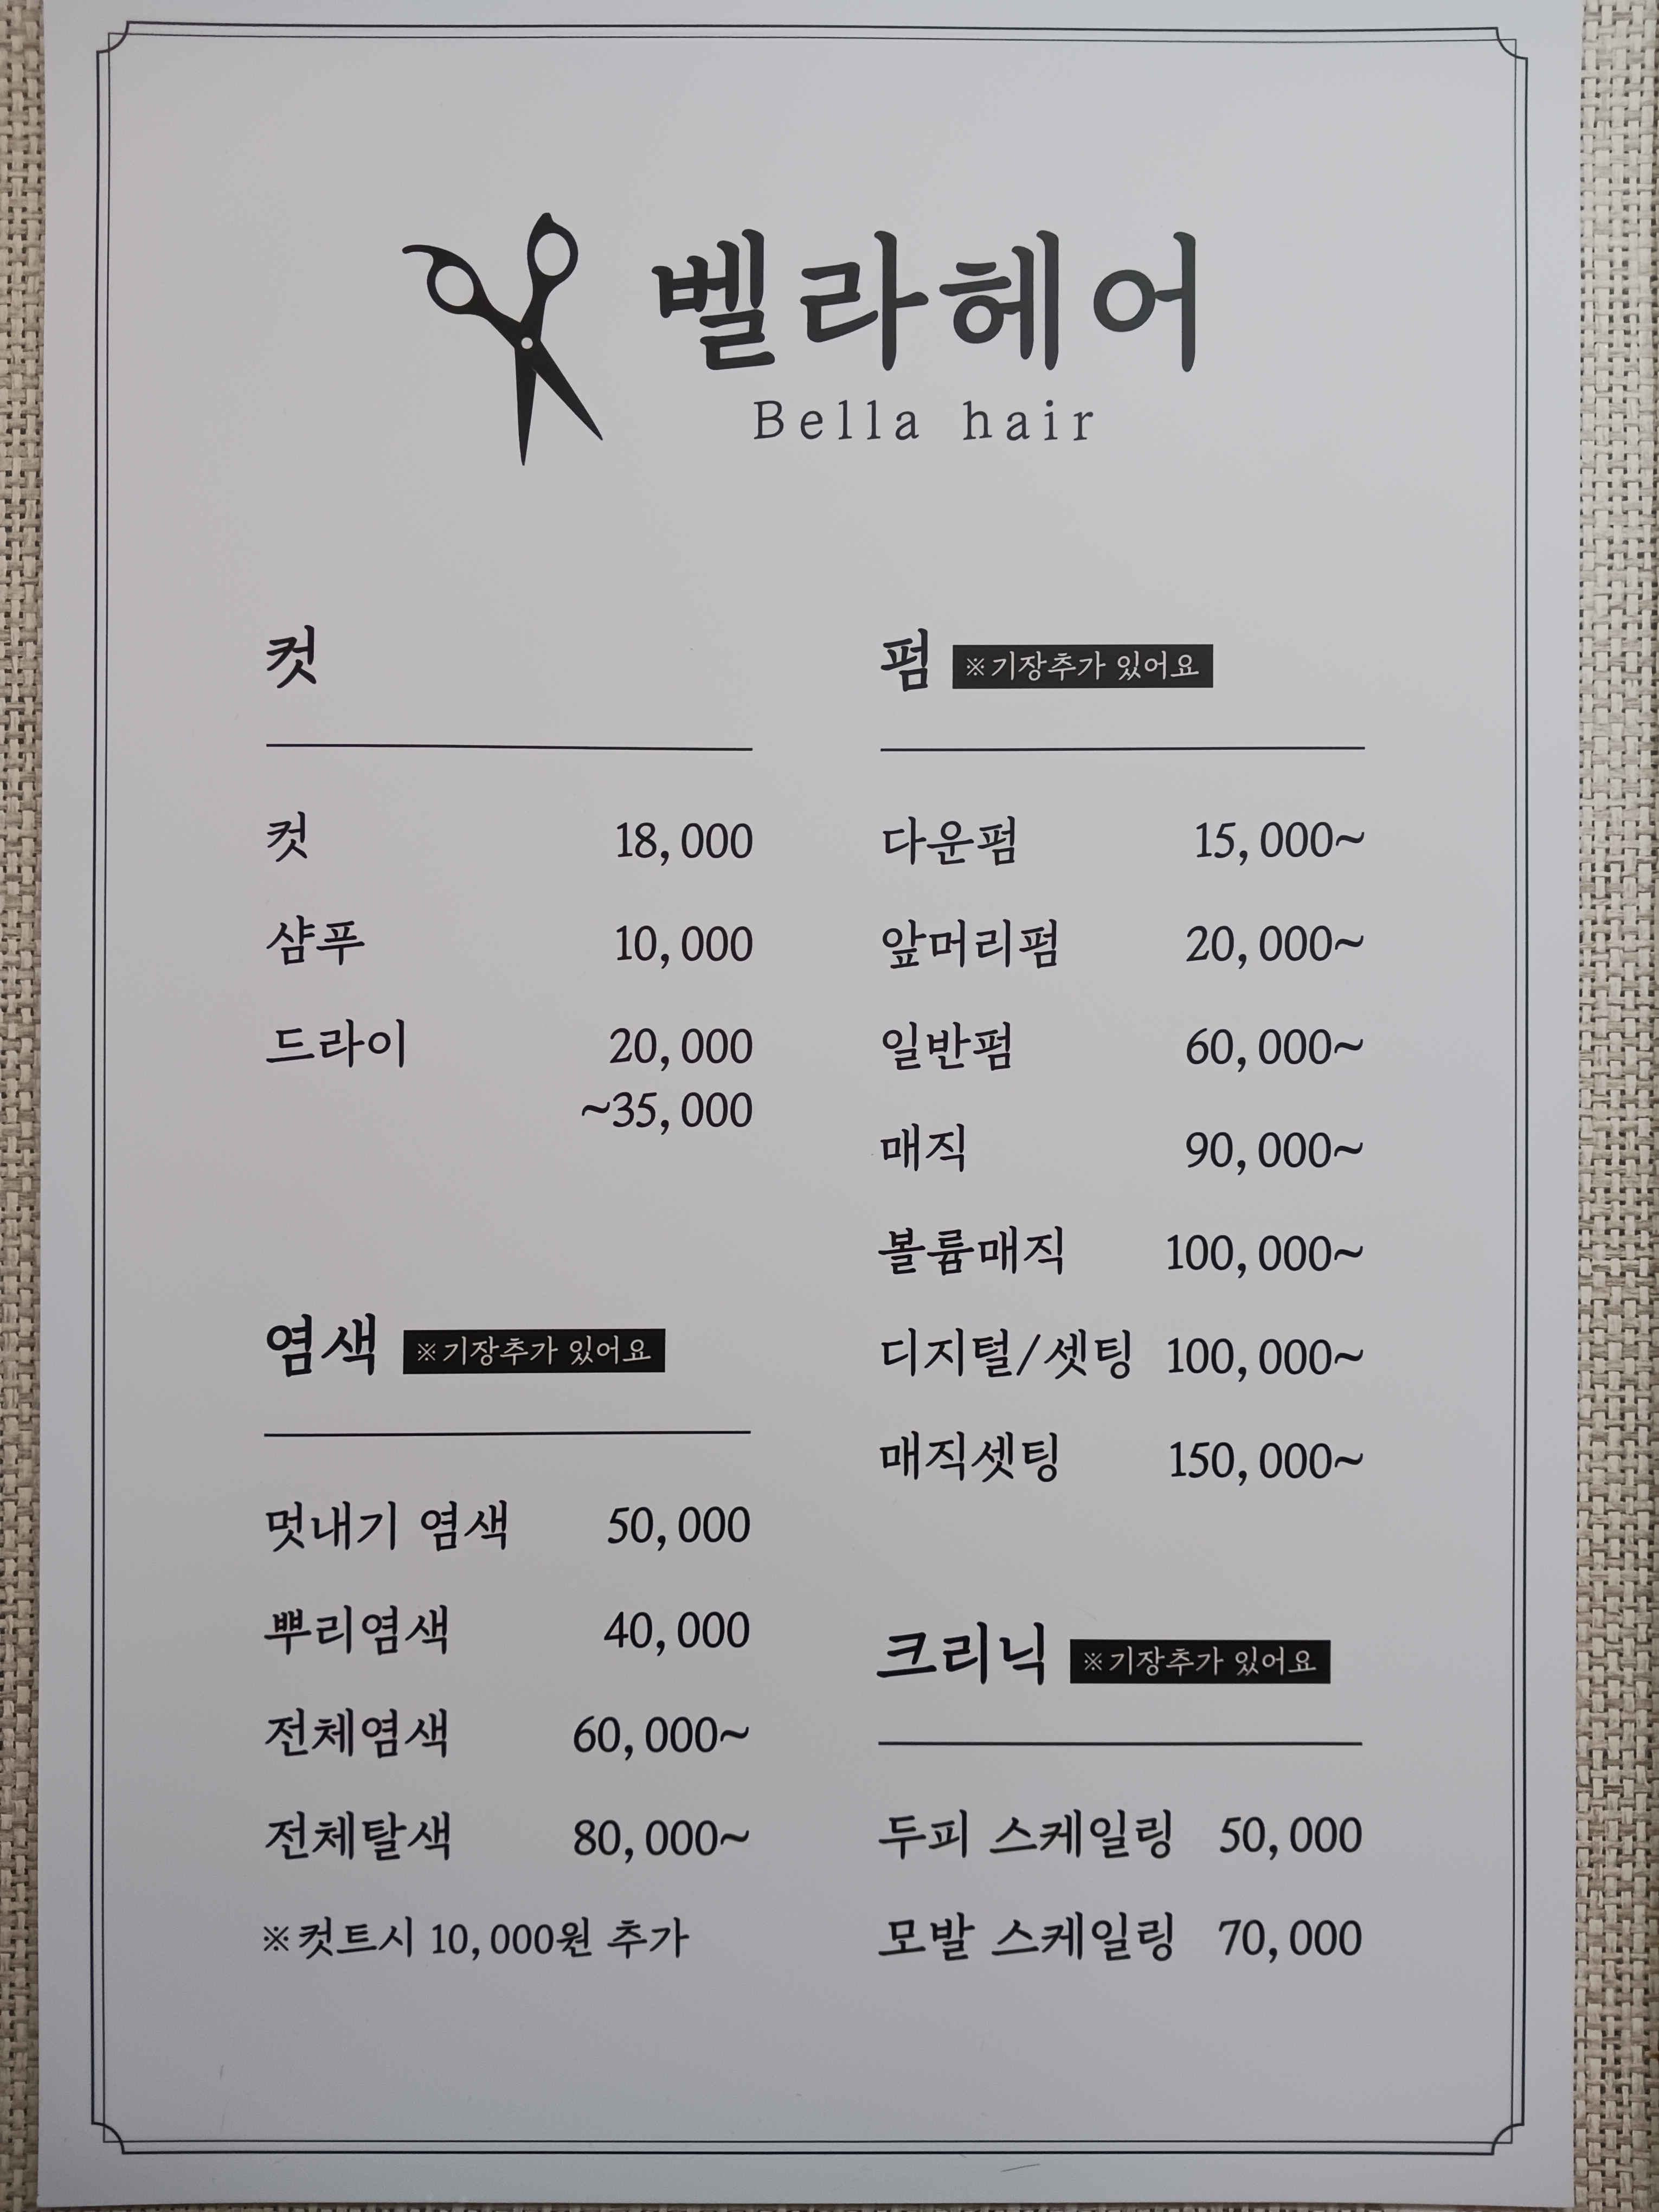 벨라헤어
Bella hair
컷
컷 18,000
샴푸 10,000
드라이 20,000
~35,000
염색 ※기장추가 있어요
멋내기 염색 50,000
뿌리염색 40,000
전체염색 60,000~
전체탈색 80,000~
※컷트시 10,000원 추가
펌 ※기장추가 있어요
다운펌 15,000~
앞머리펌 20,000~
일반펌 60,000~
매직 90,000~
볼륨매직 100,000~
디지털/셋팅 100,000~
매직셋팅 150,000~
크리닉 ※기장추가 있어요
두피 스케일링 50,000
모발 스케일링 70,000